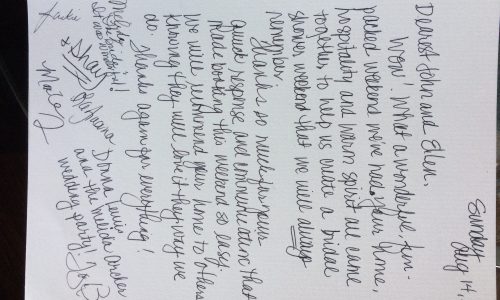 Sunday
Aug 14,
Dearest John and Ellen,
Wow! What a wonderful, fun-
packed weekend we've had. Your home,
hospitality and warm spirit all came
together to help us create a bridal
shower weekend that we will always
remember.
Thanks so much for your
quick response and communication that
made booking this weekend so easy.
We will recommend your home to others
knowing they will love it the way we
do. Thanks again for everything!
Donna Lewis
and the Melida
wedding party
Stephanie
Shay
Jackie